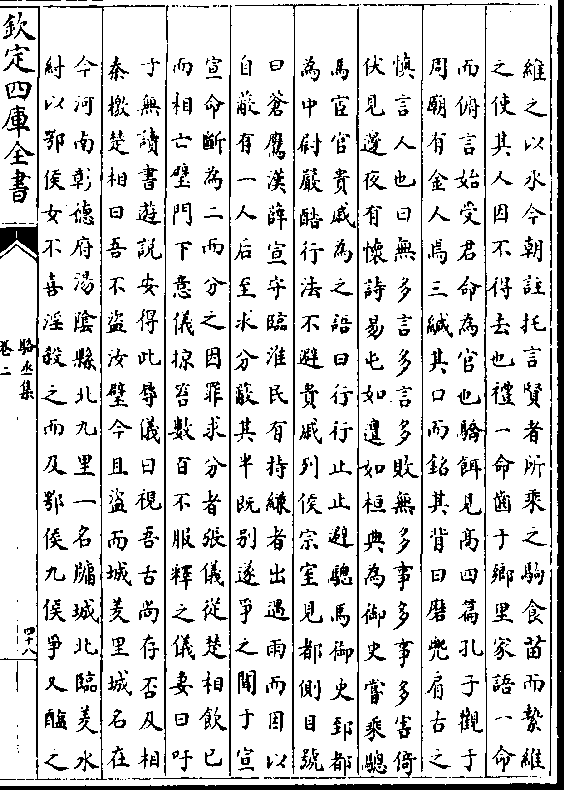 維之以水今朝註托言賢者所乗之駒食苗而縶維
之使其人因不得去也禮一命齒于鄉里家語一命
而俯言始受君命為官也驕餌見髙四篇孔子觀于
周廟有金人焉三緘其口而銘其背曰磨兜肩古之
慎言人也曰無多言多言多敗無多事多事多害倚
伏見邊夜有懐詩易屯如邅如桓典為御史嘗乗驄
馬宦官貴戚為之語曰行行止止避驄馬御史郅都
為中尉嚴酷行法不避貴戚列侯宗室見都側目號
曰蒼鷹漢薛宣守臨淮民有持縑者出遇雨而因以
自蔽有一人后至求分蔽其半既别遂爭之聞于宣
宣命斷為二而分之因罪求分者張儀從楚相飲已
而相亡璧門下意儀掠笞數百不服釋之儀妻曰吁
子無讀書遊説安得此辱儀曰視吾古尚存否及相
秦檄楚相曰吾不盗汝璧今且盗而城羑里城名在
今河南彰徳府湯隂縣北九里一名牖城北臨羑水
紂以鄂侯女不喜淫殺之而及鄂侯九侯爭又醢之
欽定四庫全書
駱丞集
卷二
四十八